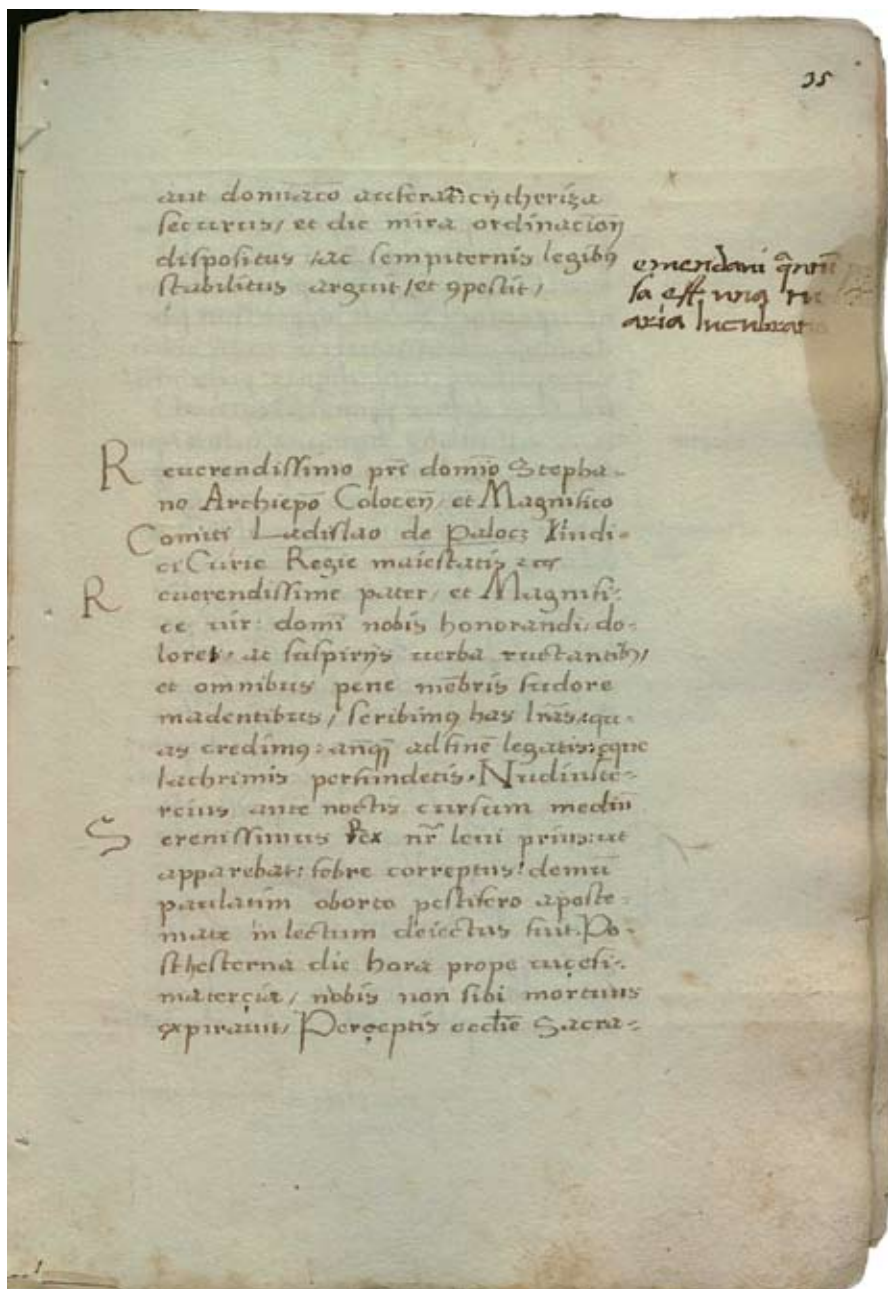 35
aut domuātō
securus, et dic mira ordinacioῃ
dispositus, ac sempiternis legibꝰ
stabilitus arguit, et ꝯpescit,
emendavi
sa est una
aria lucubrati
Reverendissimo prī domīo Stepha-
no Archiepō Coloceῃ, et Magnifico
Comiti Ladislao de Palocz Iudi-
ci Curie Regie maiestatis ꝛcꝫ
Reverendissime pater, et Magnifi-
ce vir: domī nobis honorandi, do-
lores, ac suspirijs verba ructantibꝰ,
et omnibus pene mēbris sudore
madentibus, scribimꝰ has lr̄as, qu-
as credimꝰ: anꝙ̄ ad finē legatis: eque
lachrimis perfundetis. Nudiuste-
rcius ante noctis cursum mediū
Serenissimus Rex nr̄ levi prius: ut
apparebat: febre correptus: demū
paulatim oborto pestifero aposte-
mate in lectum deiectus fuit. Po-
sthesterna die hora prope vigesi-
matercia, nobis non sibi mortuus
expiravit, Perceptis ecclīe Sacra-